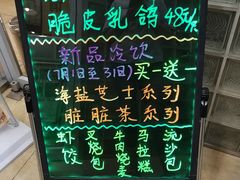 脆皮乳鸽48元/只
新品冷饮
(7月1日至31日)买一送一
海盐芝士系列
脏脏茶系列
虾饺
叉烧包
牛肉烧卖
马拉糕
流沙包